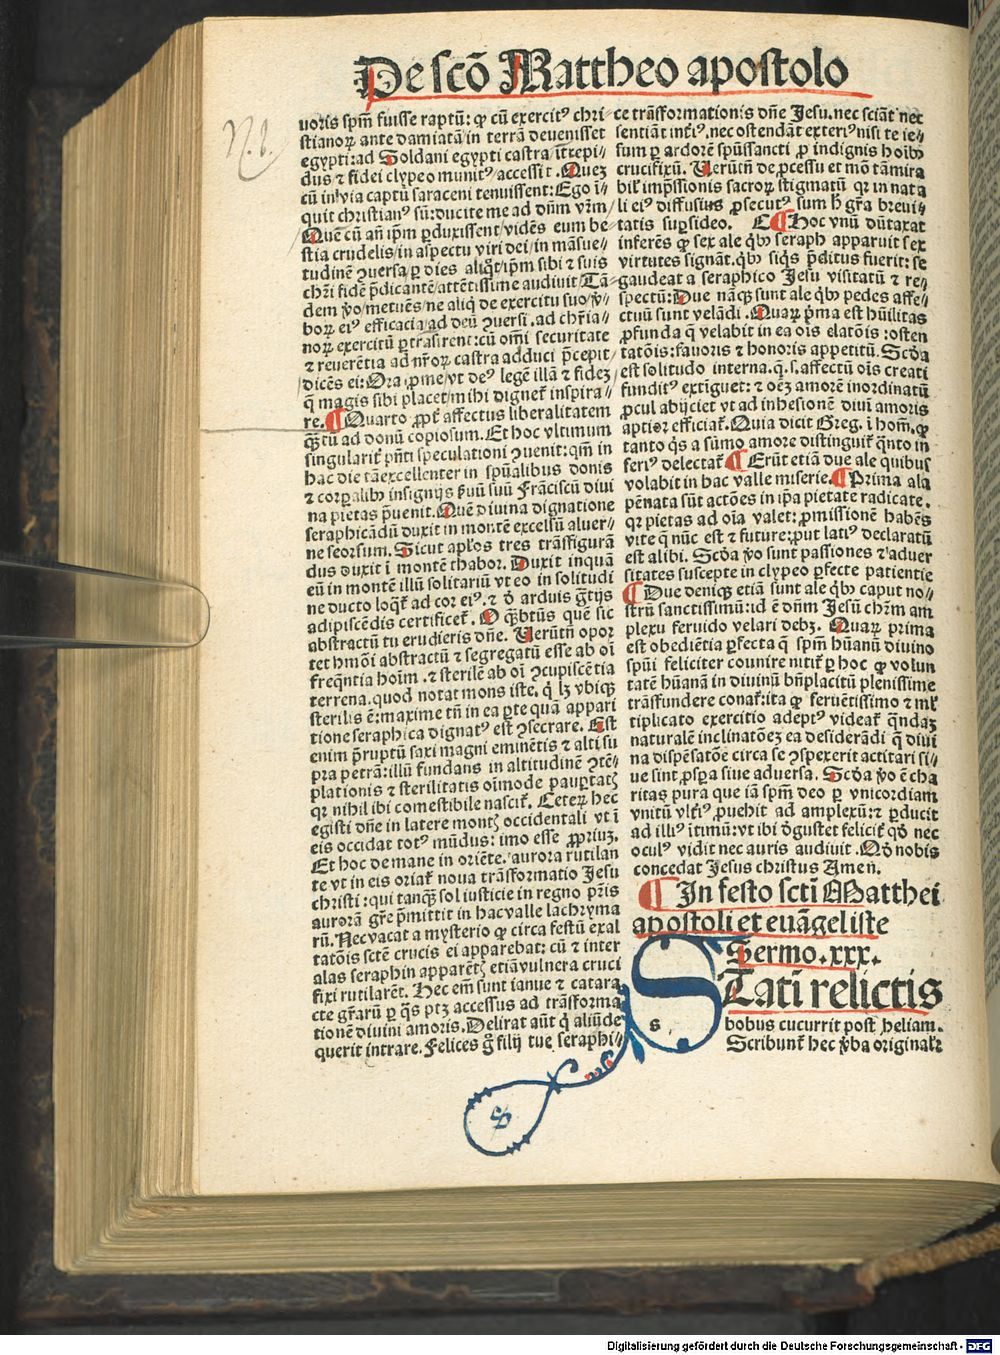 De scō Mattheo apostolo
N.b.
uoris spm̄ fuisse raptū: ꝙ cū exercitꝰ chri⸗
stianoꝝ ante damiatā in terrā deuenisset
egypti: ad Soldani egypti castra ītrepi⸗
dus ⁊ fidei clypeo munitꝰ accessit. Quez
cū in via captū saraceni tenuissent: Ego ī⸗
quit christianꝰ sū: ducite me ad dn̄m vr̄m/
Quē cū an̄ ip̄m ꝑduxissent/vidēs eum be⸗
stia crudelis/in aspectu viri dei/in māsue⸗
tudinē ꝯuersa/ꝑ dies aliqt/ip̄m sibi ⁊ suis
chr̄i fidē p̄dicantē/attētissime audiuit Tā⸗
dem ꝟo/metuēs/ne aliq̄ de exercitu suo/ꝟ⸗
boꝝ eiꝰ efficacia/ad deū ꝯuersi. ad chr̄ia⸗
noꝝ exercitū ꝑtransirent: cū om̄i securitate
⁊ reuerētia ad nr̄oꝝ castra adduci p̄cepit/
dicēs ei: Ora ꝓ me/vt deꝰ legē illā ⁊ fidez
q̄ magis sibi placet/mihi dignet̄ inspira⸗
re. ¶ Quarto ꝓpt̄ affectus liberalitatem
qʒtū ad donū copiosum. Et hoc vltimum
singularit̄ pn̄ti speculationi ꝯuenit: qm̄ in
hac die tā excellenter in spūalibus donis
⁊ corꝑalibꝰ insignijs ẜuū suū Frāciscū diui
na pietas p̄uenit. Quē diuina dignatione
seraphicādū duxit in montē excelsū aluer⸗
ne seorsum. Sicut apłos tres trāsfigurā
dus duxit ī montē thabor. Duxit inquā
eū in montē illū solitariū vt eo in solitudi
ne ducto loqr̄t ad cor eiꝰ. ⁊ ð arduis gr̄tijs
adipiscēdis certificet̄. O qʒbtūs que sic
abstractū tu erudieris dn̄e. Verūtn̄ opor
tet hmōi abstractū ⁊ segregatū esse ab oī
freqn̄tia hoīm. ⁊ sterilē ab oī ꝯcupiscētia
terrena. quod notat mons iste. q̇ lʒ vbiqʒ
sterilis ē: maxime tn̄ in ea ꝑte quā appari
tione seraphica dignatꝰ est ꝯsecrare. Est
enim p̄ruptū saxi magni eminētis ⁊ alti su
pra petrā: illū fundans in altitudinē ꝯtē⸗
plationis ⁊ sterilitatis oīmode pauꝑtatꝭ
qꝛ nihil ibi comestibile nascit̄. Ceteꝝ hec
egisti dn̄e in latere montꝭ occidentali vt ī
eis occidat totꝰ mūdus: imo esse ꝓpriuꝫ.
Et hoc de mane in oriēte. aurora rutilan
te vt in eis oriat̄ noua trāsformatio Jesu
christi: qui tanqʒ sol iusticie in regno pr̄is
aurorā gr̄e p̄mittit in hac valle lachryma
rū. Nec vacat a mysterio ꝙ circa festū exal
tatōis sctē crucis ei apparebat: cū ⁊ inter
alas seraphin apparētꝭ etiā vulnera cruci
fixi rutilarēt. Hec em̄ sunt ianue ⁊ catara
cte gr̄arū ꝑ q̄s ptꝫ accessus ad trāsforma
tionē diuini amoris. Delirat aūt q̇ aliūde
querit intrare. Felices g̊ filij tue seraphi⸗
ce trāsformationis dn̄e Jesu. nec sciāt nec
sentiāt int̄iꝰ. nec ostendāt exteriꝰ nisi te ie⸗
sum ꝑ ardorē spūssancti ꝓ indignis hoībꝰ
crucifixū. Verūtn̄ de ꝓcessu et mō tā mira
bil̄ imp̄ssionis sacroꝝ stigmatū qꝛ in nata
li eiꝰ diffusius ꝓsecutꝰ sum hꝰ gr̄a breui⸗
tatis suꝑsideo. ¶ Hoc vnū dūtaxat
inferēs ꝙ sex ale q̇bꝰ seraph apparuit sex
virtutes signāt. q̇bꝰ siq̇s p̄ditus fuerit: se
gaudeat a seraphico Jesu visitatū ⁊ re⸗
spectū: Due nāqʒ sunt ale q̇bꝰ pedes affe⸗
ctuū sunt velādi. Quaꝝ pꝛma est hūilitas
ꝓfunda q̄ velabit in ea oīs elatōis: osten
tatōis: fauoris ⁊ honoris appetitū. Scd̄a
est solitudo interna. q. s. affectū oīs creati
funditꝰ extīguet: ⁊ oēꝫ amorē inordinatū
ꝓcul abijciet vt ad inhesionē diuī amoris
aptior efficiat̄. Quia dicit Greg. ī hom̄. ꝙ
tanto q̇s a sūmo amore distinguit̄ q̇nto in
feriꝰ delectat̄ ¶ Erūt etiā due ale quibus
volabit in hac valle miserie. ¶ Prima ala
pēnata sūt actōes in ip̄a pietate radicate.
qꝛ pietas ad oīa valet: ꝓmissionē habēs
vite q̄ nūc est ⁊ future: ꝓut latiꝰ declaratū
est alibi. Scd̄a ꝟo sunt passiones ⁊ aduer
sitates suscepte in clypeo ꝑfecte patientie
¶ Due deniqʒ etiā sunt ale q̇bꝰ caput no⸗
strū sanctissimū: id ē dn̄m Jesū chr̄m am
plexu feruido velari debꝫ. Quaꝝ prima
est obediētia ꝑfecta q̄ spm̄ hūanū diuino
spūi feliciter counire nitit̄ ꝑ hoc ꝙ volun
tatē hūanā in diuinū bn̄placitū plenissime
trāsfundere conat̄: ita ꝙ feruētissimo ⁊ ml̄
tiplicato exercitio adeptꝰ videat̄ qn̄daꝫ
naturalē inclinatōeꝫ ea desiderādi q̄ diui
na dispēsatōe circa se ꝯspexerit actitari si⸗
ue sint ꝓsꝑa siue aduersa. Scd̄a ꝟo ē cha
ritas pura que iā spm̄ deo ꝑ vnicordiam
vnitū vlt̄iꝰ ꝓuehit ad amplexū: ⁊ ꝑducit
ad illiꝰ ītimū: vt ibi ðgustet felicit̄ qð nec
oculꝰ vidit nec auris audiuit. Qð nobis
concedat Jesus christus Amen.
¶ In festo sctī Matthei
apostoli et euāgeliste
Sermo. xxx.
S Tatī relictis
bobus cucurrit post heliam.
Scribunt̄ hec ꝟba original̄r
s
S
Digitalisierung gefördert durch die Deutsche Forschungsgemeinschaft - DFG